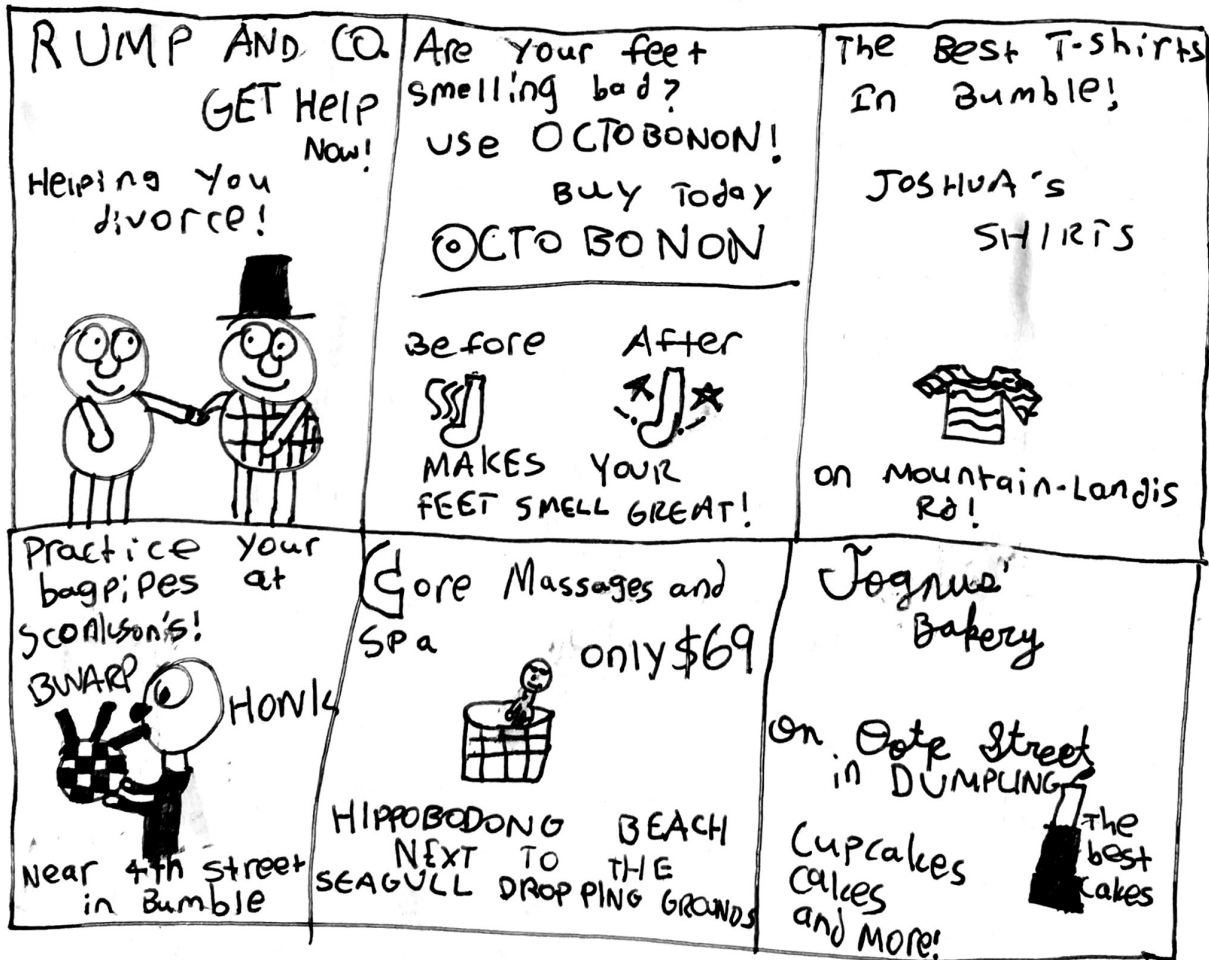 RUMP AND CO.
GET Help
Now!
Helping You
divorce!
Are Your feet
smelling bad?
use OCTOBONON!
Buy Today
OCTOBONON
Before After
MAKES YOUR
FEET SMELL GREAT!
The Best T-shirts
In Bumble!
JOSHUA's
SHIRTS
on Mountain-Landis
Rd!
Practice your
bagpipes at
BWARP
HONK
Near 4th street
in Bumble
Gore Massages and
Spa
only $69
HIPPOBODONG BEACH
NEXT TO THE
SEAGULL DROPPING GROUNDS
Jognus'
Bakery
On Oote Street
in DUMPLING
Cupcakes
cakes
and More!
The
best
cakes